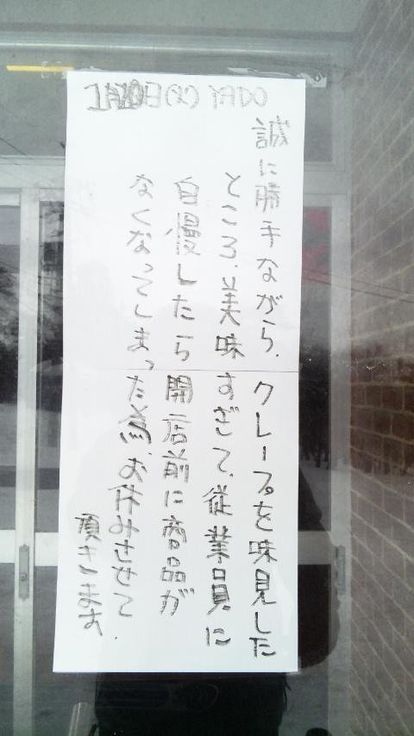 1月20日(火) YADO
誠に勝手ながら、クレープを味見した
ところ、美味すぎて、従業員に
自慢したら開店前に商品が
なくなってしまった為、お休みさせて
頂きます。